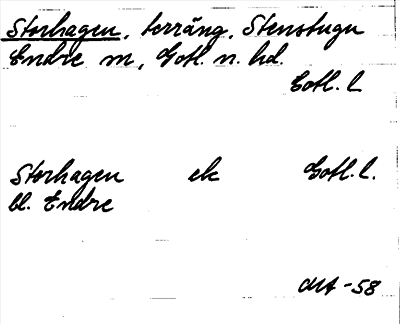 Storhagen, terräng, Stenstugu
Endre sn, Gotl. n. hd.
Gotl. l
Storhagen ek Gotl. l.
bl. Endre
-58